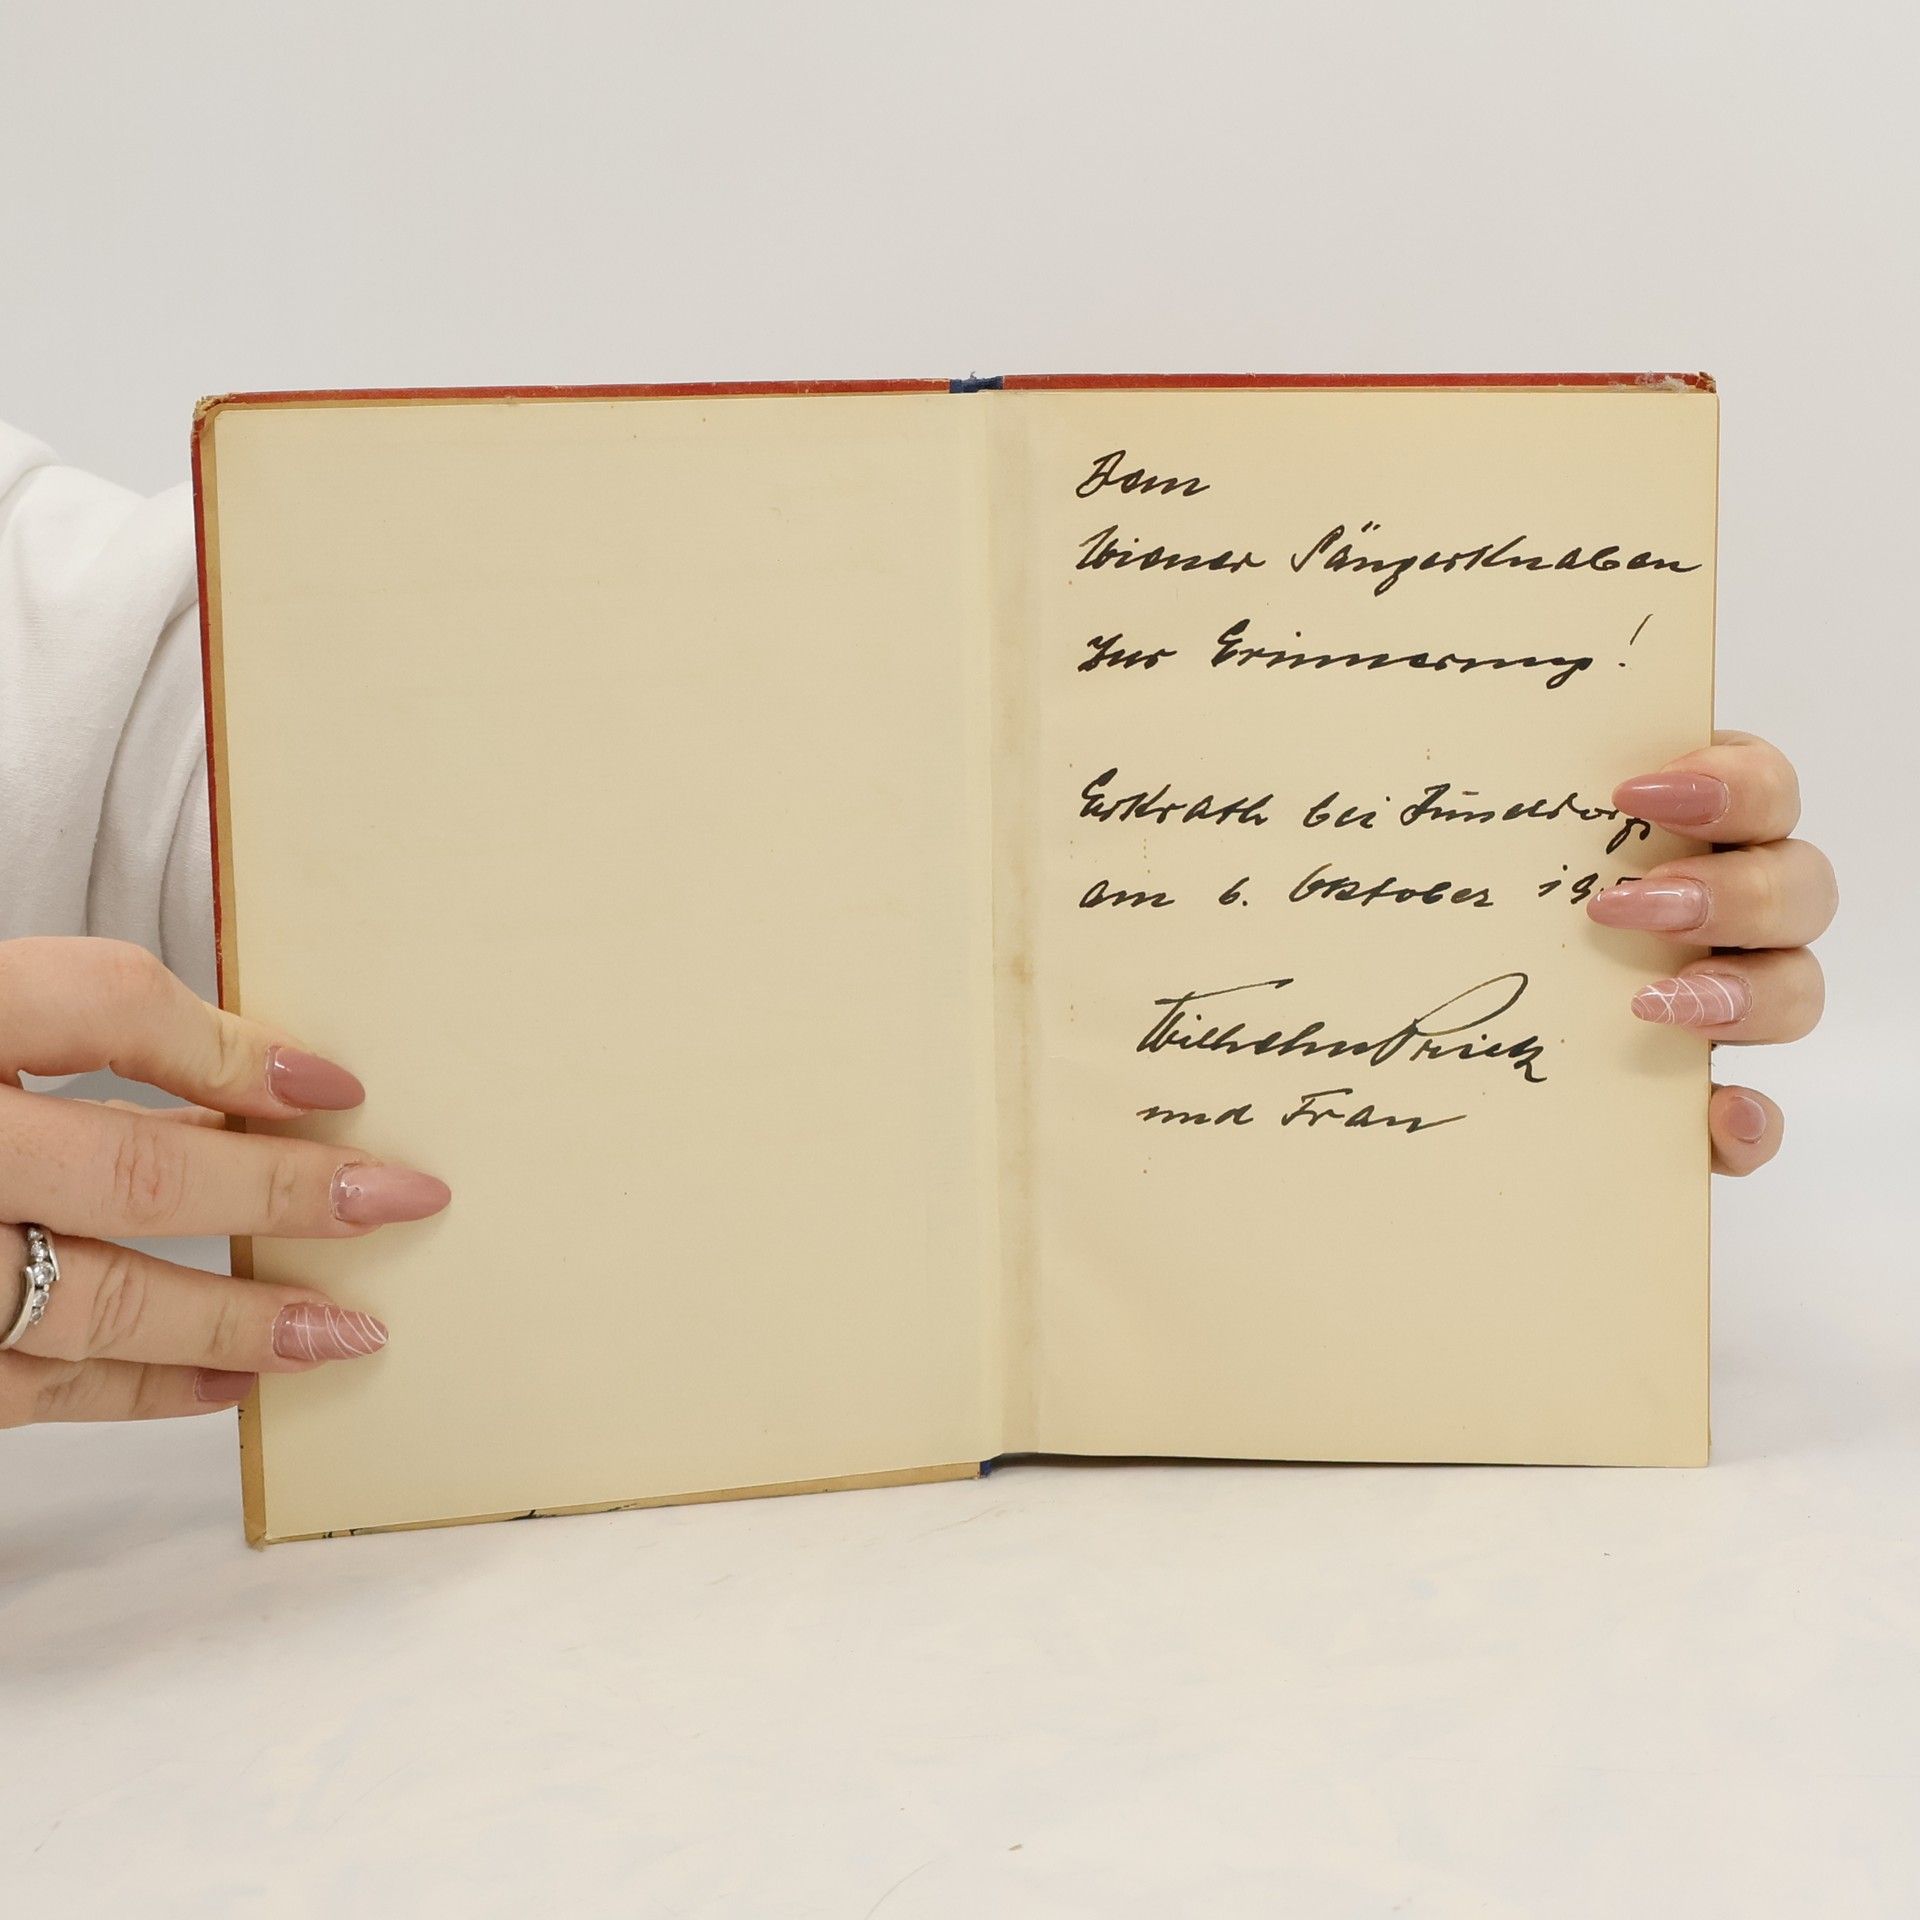 Dem
Wiener Sängerknaben
zur Erinnerung!
Erkrath bei Düsseldorf
am 6. Oktober 195
Wilhelm
und Frau